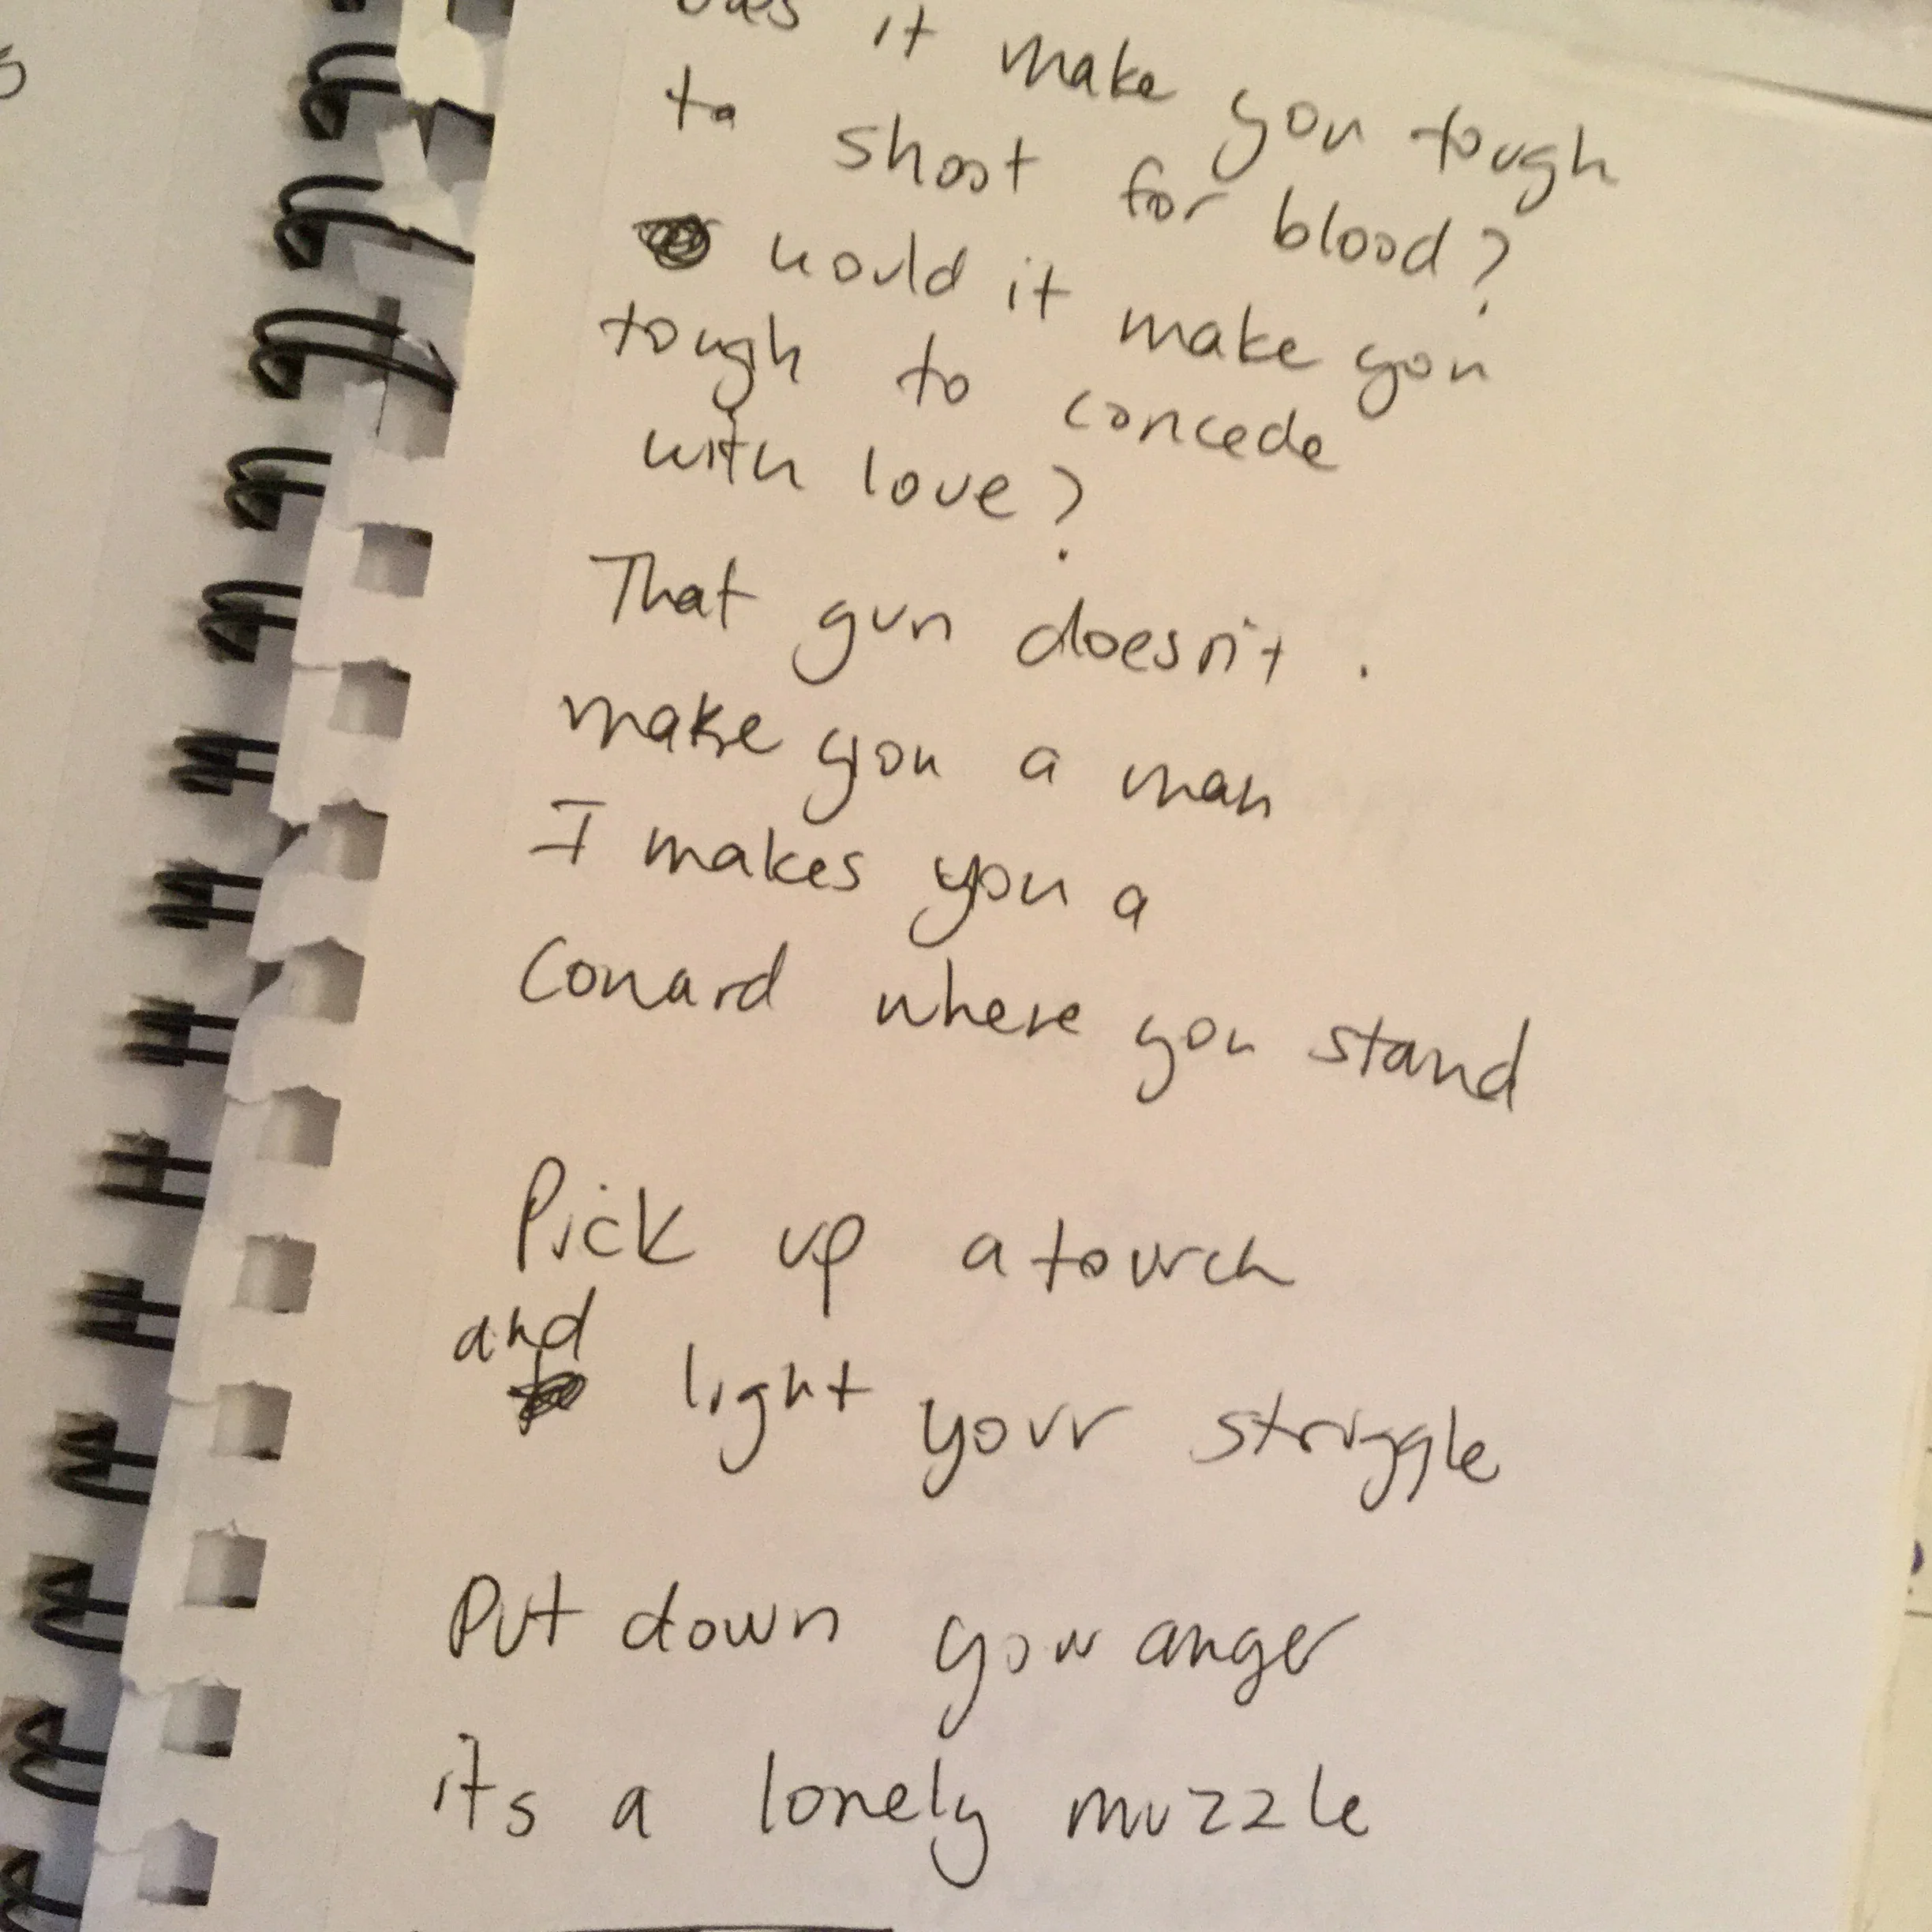 it make you tough
to shoot for blood?
would it make you
tough to concede
with love?
That gun doesn't.
make you a man
I makes you a
Coward where you stand
Pick up a tourch
and
light your struggle
Put down your anger
its a lonely muzzle